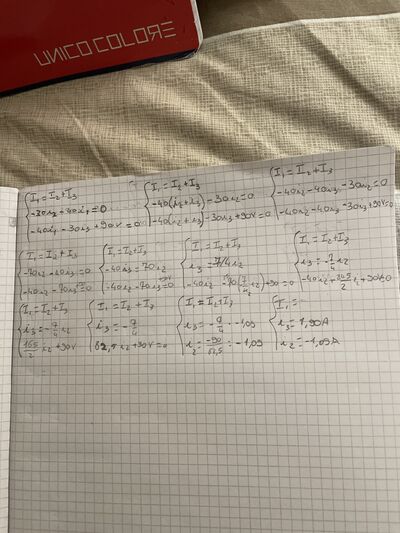 UNICOCOLORE
I₁ = I₂ + I₃
-30i₂ - 40i₁ = 0
-40i₁ - 30i₃ + 90V = 0
I₁ = I₂ + I₃
-40(i₂ + i₃) - 30i₂ = 0
-40(i₂ + i₃) - 30i₃ + 90V = 0
I₁ = I₂ + I₃
-40i₂ - 40i₃ - 30i₂ = 0
-40i₂ - 40i₃ - 30i₃ + 90V = 0
I₁ = I₂ + I₃
-70i₂ - 40i₃ = 0
-40i₂ - 70i₃ +90V = 0
I₁ = I₂ + I₃
-40i₃ = 70i₂
-40i₂ - 70i₃ +90V = 0
I₁ = I₂ + I₃
i₃ = 7/4 i₂
+ 90 = 0
I₁ = I₂ + I₃
i₃ = -7/4 i₂
I₁ = I₂ + I₃
i₃ = -7/4 i₂
165/2 i₂ + 90V
I₁ = I₂ + I₃
i₃ = -7/4
82,5 i₂ + 90V = 0
I₁ = I₂ + I₃
i₃ = -7/4 · -1,09
i₂ = = -1,09
I₁ =
i₃ = 1,90A
i₂ = -1,09A